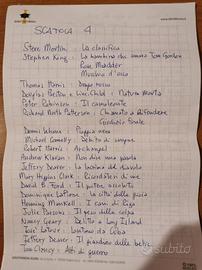 SCATOLA 4
Steve Martini : La clarifica
Stephen King : La bambina che amava Tom Gordon
Rose Madder
Mucchio d'ossa
Thomas Harris : Drago rosso
Douglas Preston e Linc. Child : Natura morta
Peter Robinson : Il camaleonte
Richard North Patterson : Chiamato a difendere
Giudizio finale
Dennis Lehane : Pioggia nera
Michael Connelly : Debito di sangue
Robert Harris : Archangel
Andrew Klavan : Non dire una parola
Jeffery Deaver : La lacrima del diavolo
Mary Higgins Clark : Ricordatevi di me
David B. Ford : Il potere assoluto
Dominique Lapierre : La città della gioia
Henning Mankell : I cani di Riga
Julie Parsons : Il peso della colpa
Nancy Geary : Delitto a Long Island
José Latour : La
Jeffery Deaver : Il giardino delle belve
Tom Clancy : Atti di guerra
Subito